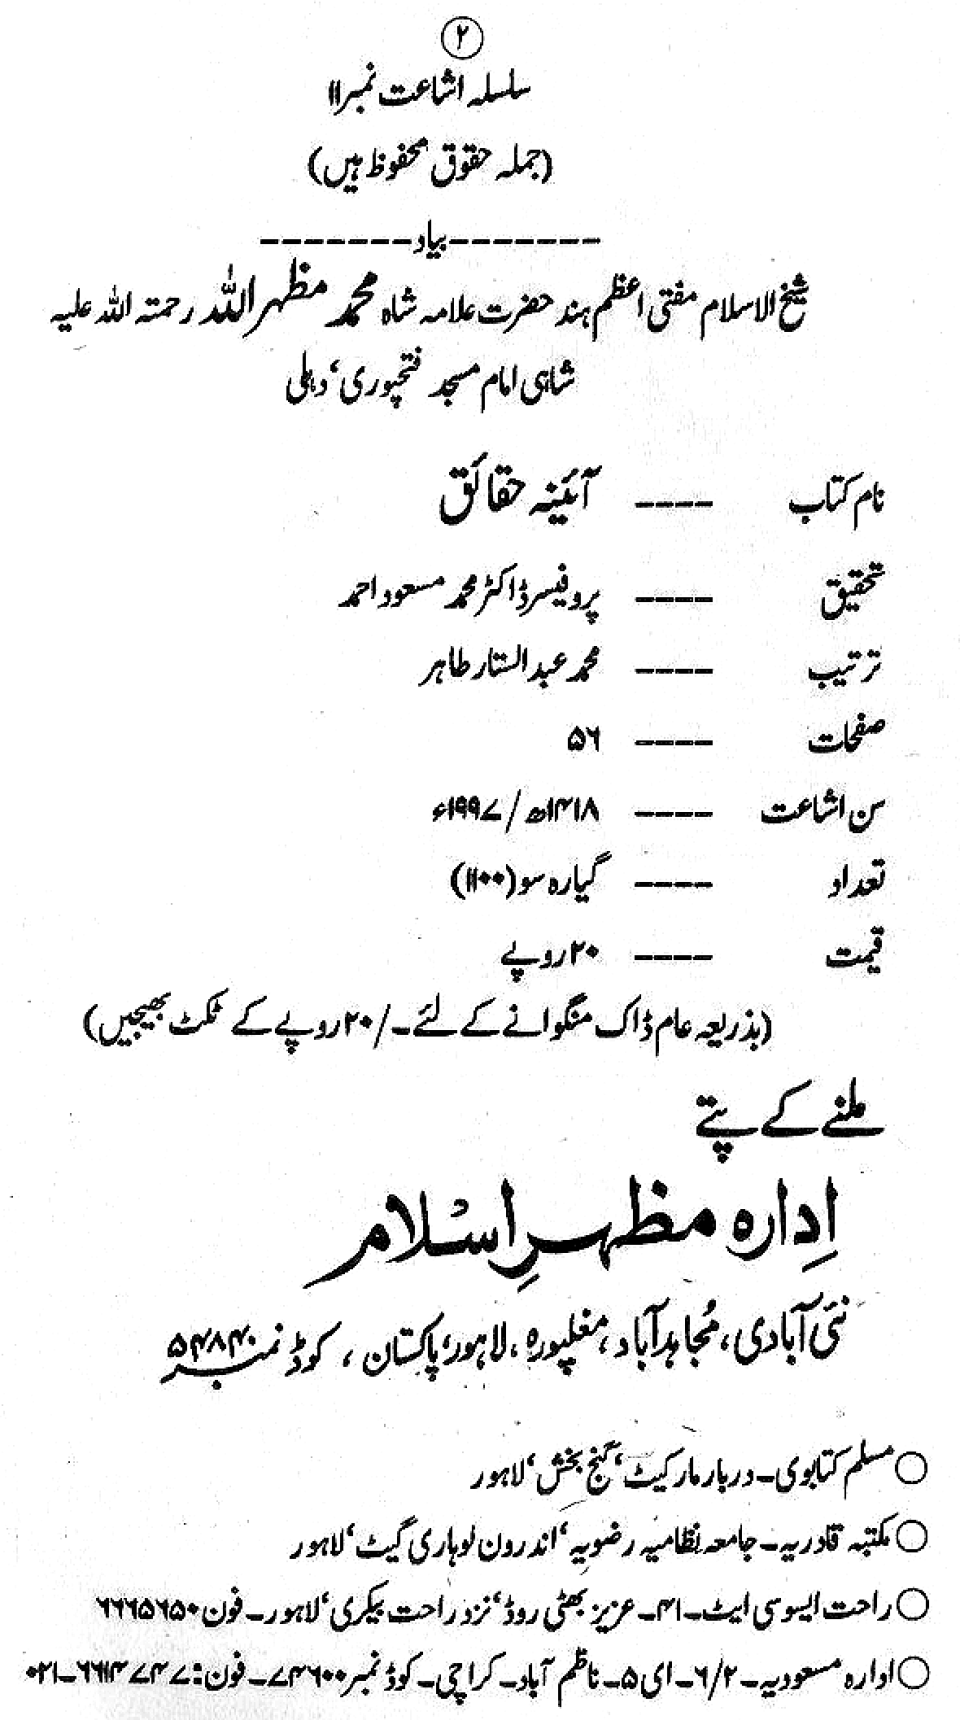 ۲
سلسلہ اشاعت نمبر ۱۱
(جملہ حقوق محفوظ ہیں)
-------بیاد-------
شیخ الاسلام مفتی اعظم ہند حضرت علامہ شاہ محمد مظہر اللہ رحمتہ اللہ علیہ
شاہی امام مسجد فتحپوری، دہلی
نام کتاب ---- آئینہ حقائق
تحقیق ---- پروفیسر ڈاکٹر محمد مسعود احمد
ترتیب ---- محمد عبدالستار طاہر
صفحات ---- ۵۶
سن اشاعت ---- ۱۴۱۸ھ / ۱۹۹۷ء
تعداد ---- گیارہ سو (۱۱۰۰)
قیمت ---- ۲۰ روپے
(بذریعہ عام ڈاک منگوانے کے لئے -/۲۰ روپے کے ٹکٹ بھیجیں)
ملنے کے پتے
اِدارہ مظہرِ اسلام
نئی آبادی، مُجاہد آباد، مغلپورہ، لاہور، پاکستان، کوڈ نمبر ۵۴۸۴۰
○ مسلم کتابوی۔ دربار مارکیٹ، گنج بخش، لاہور
○ مکتبہ قادریہ۔ جامعہ نظامیہ رضویہ، اندرون لوہاری گیٹ، لاہور
○ راحت ایسوسی ایٹ۔ ۴۱۔ عزیز بھٹی روڈ، نزد راحت بیکری، لاہور۔ فون ۶۶۶۵۶۵۰
○ ادارہ مسعودیہ۔ ۶/۲۔ ای ۵۔ ناظم آباد۔ کراچی۔ کوڈ نمبر ۷۴۶۰۰۔ فون: ۶۶۱۴۷۴۷-۰۲۱